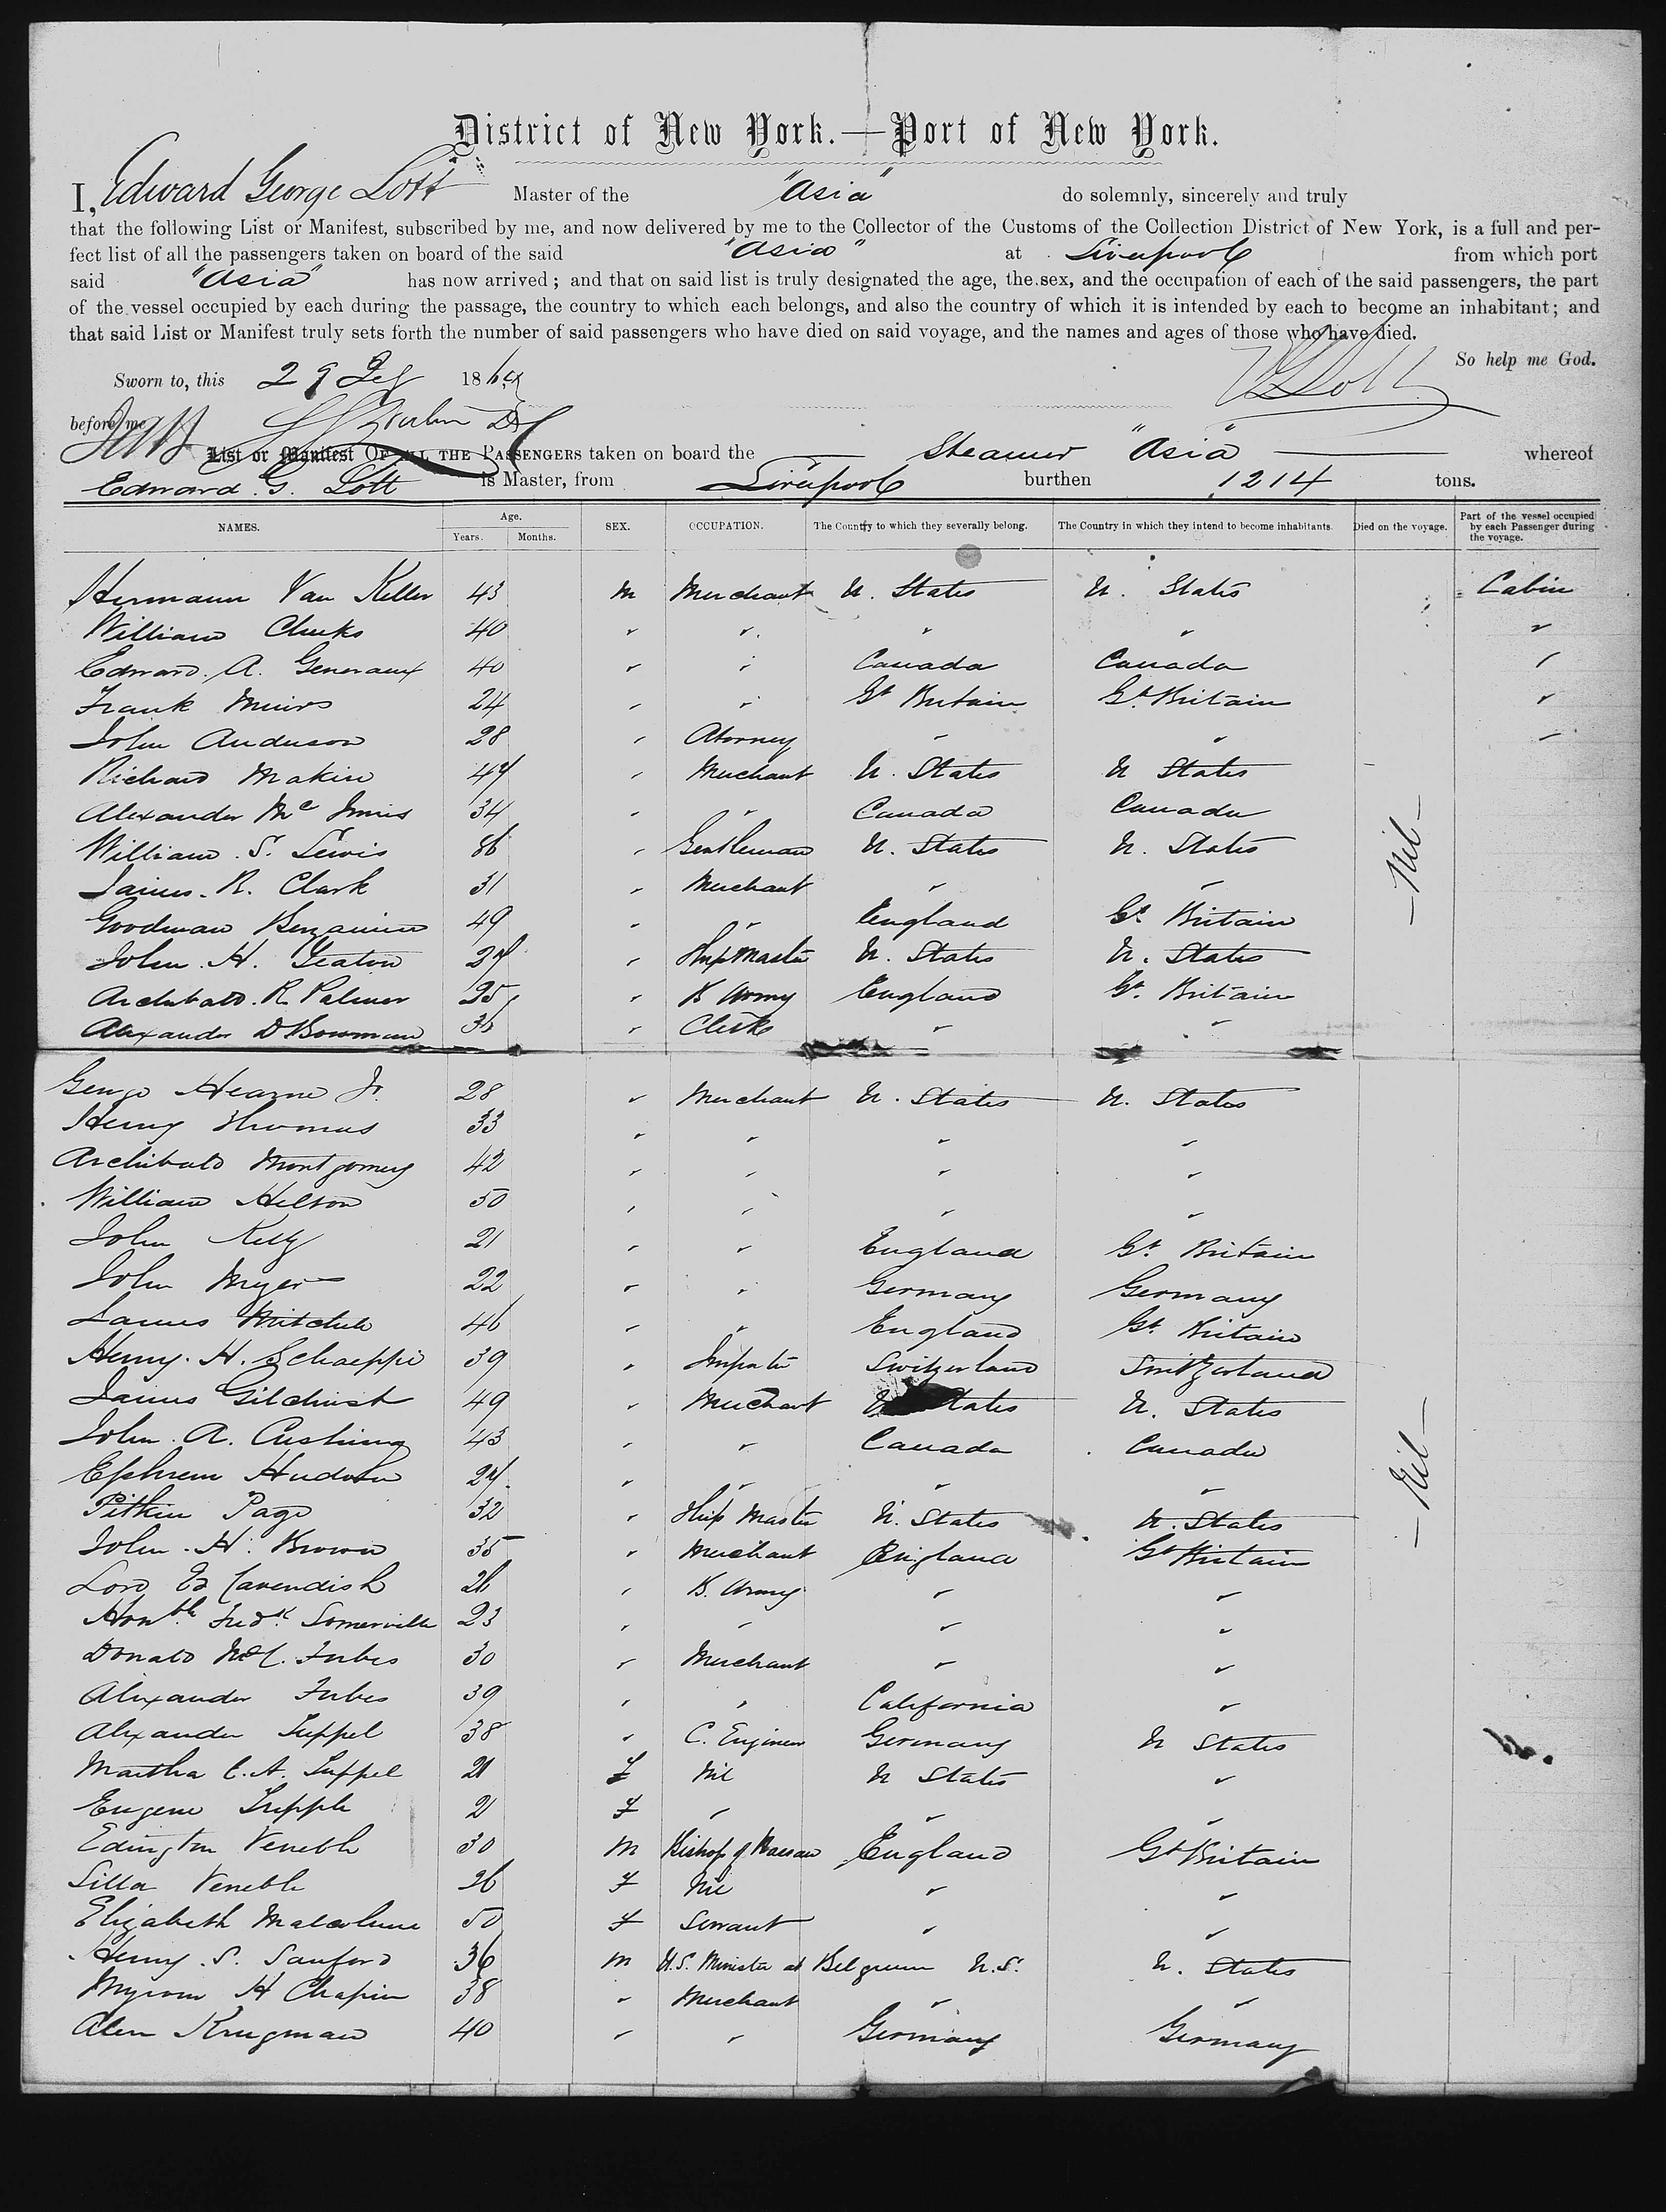 District of New York.—Port of New York.
I, Edward George Lott Master of the "Asia" do solemnly, sincerely and truly
that the following List or Manifest, subscribed by me, and now delivered by me to the Collector of the Customs of the Collection District of New York, is a full and per-
fect list of all the passengers taken on board of the said "Asia" at Liverpool from which port
said "Asia" has now arrived; and that on said list is truly designated the age, the sex, and the occupation of each of the said passengers, the part
of the vessel occupied by each during the passage, the country to which each belongs, and also the country of which it is intended by each to become an inhabitant; and
that said List or Manifest truly sets forth the number of said passengers who have died on said voyage, and the names and ages of those who have died.
So help me God.
Sworn to, this 29 186 E G Lott
before me
List or Manifest OF ALL THE PASSENGERS taken on board the Steamer "Asia" whereof
Edward G. Lott is Master, from Liverpool burthen 1214 tons.
NAMES. Age. Years. Months. SEX. OCCUPATION. The Country to which they severally belong. The Country in which they intend to become inhabitants. Died on the voyage. Part of the vessel occupied by each Passenger during the voyage.
Hermann Van Keller 43 M Merchant U. States U. States Cabin
William Cheeks 40 " " " " "
Edward A. Generaux 40 " " Canada Canada "
Frank Muirs 24 " " Gt Britain Gt Britain "
John Anderson 28 " Atorney " " "
Richard Makin 47 " Merchant U. States U States
Alexander McInnis 34 " " Canada Canada
William S. Lewis 86 " Gentleman U. States U. States
- Nil -
James R. Clark 31 " Merchant " "
Goodman Benjamin 49 " " England Gt Britain
John H. Yeaton 27 " Shipmaster U. States U. States
Archibald R. Palmer 25 " B Army England Gt Britain
Alexander D Bowman 36 " Clerk " "
George Hearne Jr. 28 " Merchant U. States U. States
Henry Thomas 33 " " " "
Archibald Montgomery 42 " " " "
William Hilson 50 " " " "
John Kelly 21 " " England Gt Britain
John Myers 22 " " Germany Germany
James Mitchell 46 " " England Gt Britain
Henry H. Schaeppi 39 " Importer Switzerland Switzerland
James Gilchrist 49 " Merchant U States U. States
John A. Cushing 43 " " Canada Canada
- Nil -
Ephrem Hudon 27 " " " "
Pitkin Page 32 " Ship Master U. States U. States
John H. Brown 35 " Merchant England Gt Britain
Lord Ed Cavendish 26 " B. Army " "
Honble Fredk Somerville 23 " " " "
Donald McL. Forbes 30 " Merchant " "
Alexander Forbes 39 " " California "
Alexander Tuppel 38 " C. Engineer Germany U States
Martha C. A. Tuppel 21 F Nil U States "
Eugene Tuppel 2 F " " "
Edington Venebl 30 M Bishop of Nassau England Gt Britain
Silla Venebl 26 F Nil " "
Elizabeth Malcolm 50 F Servant " "
Henry S. Sanford 36 M U.S. Minister at Belgium U.S. U. States
Myrom H Chapin 38 " Merchant " "
Alen Krugman 40 " " Germany Germany